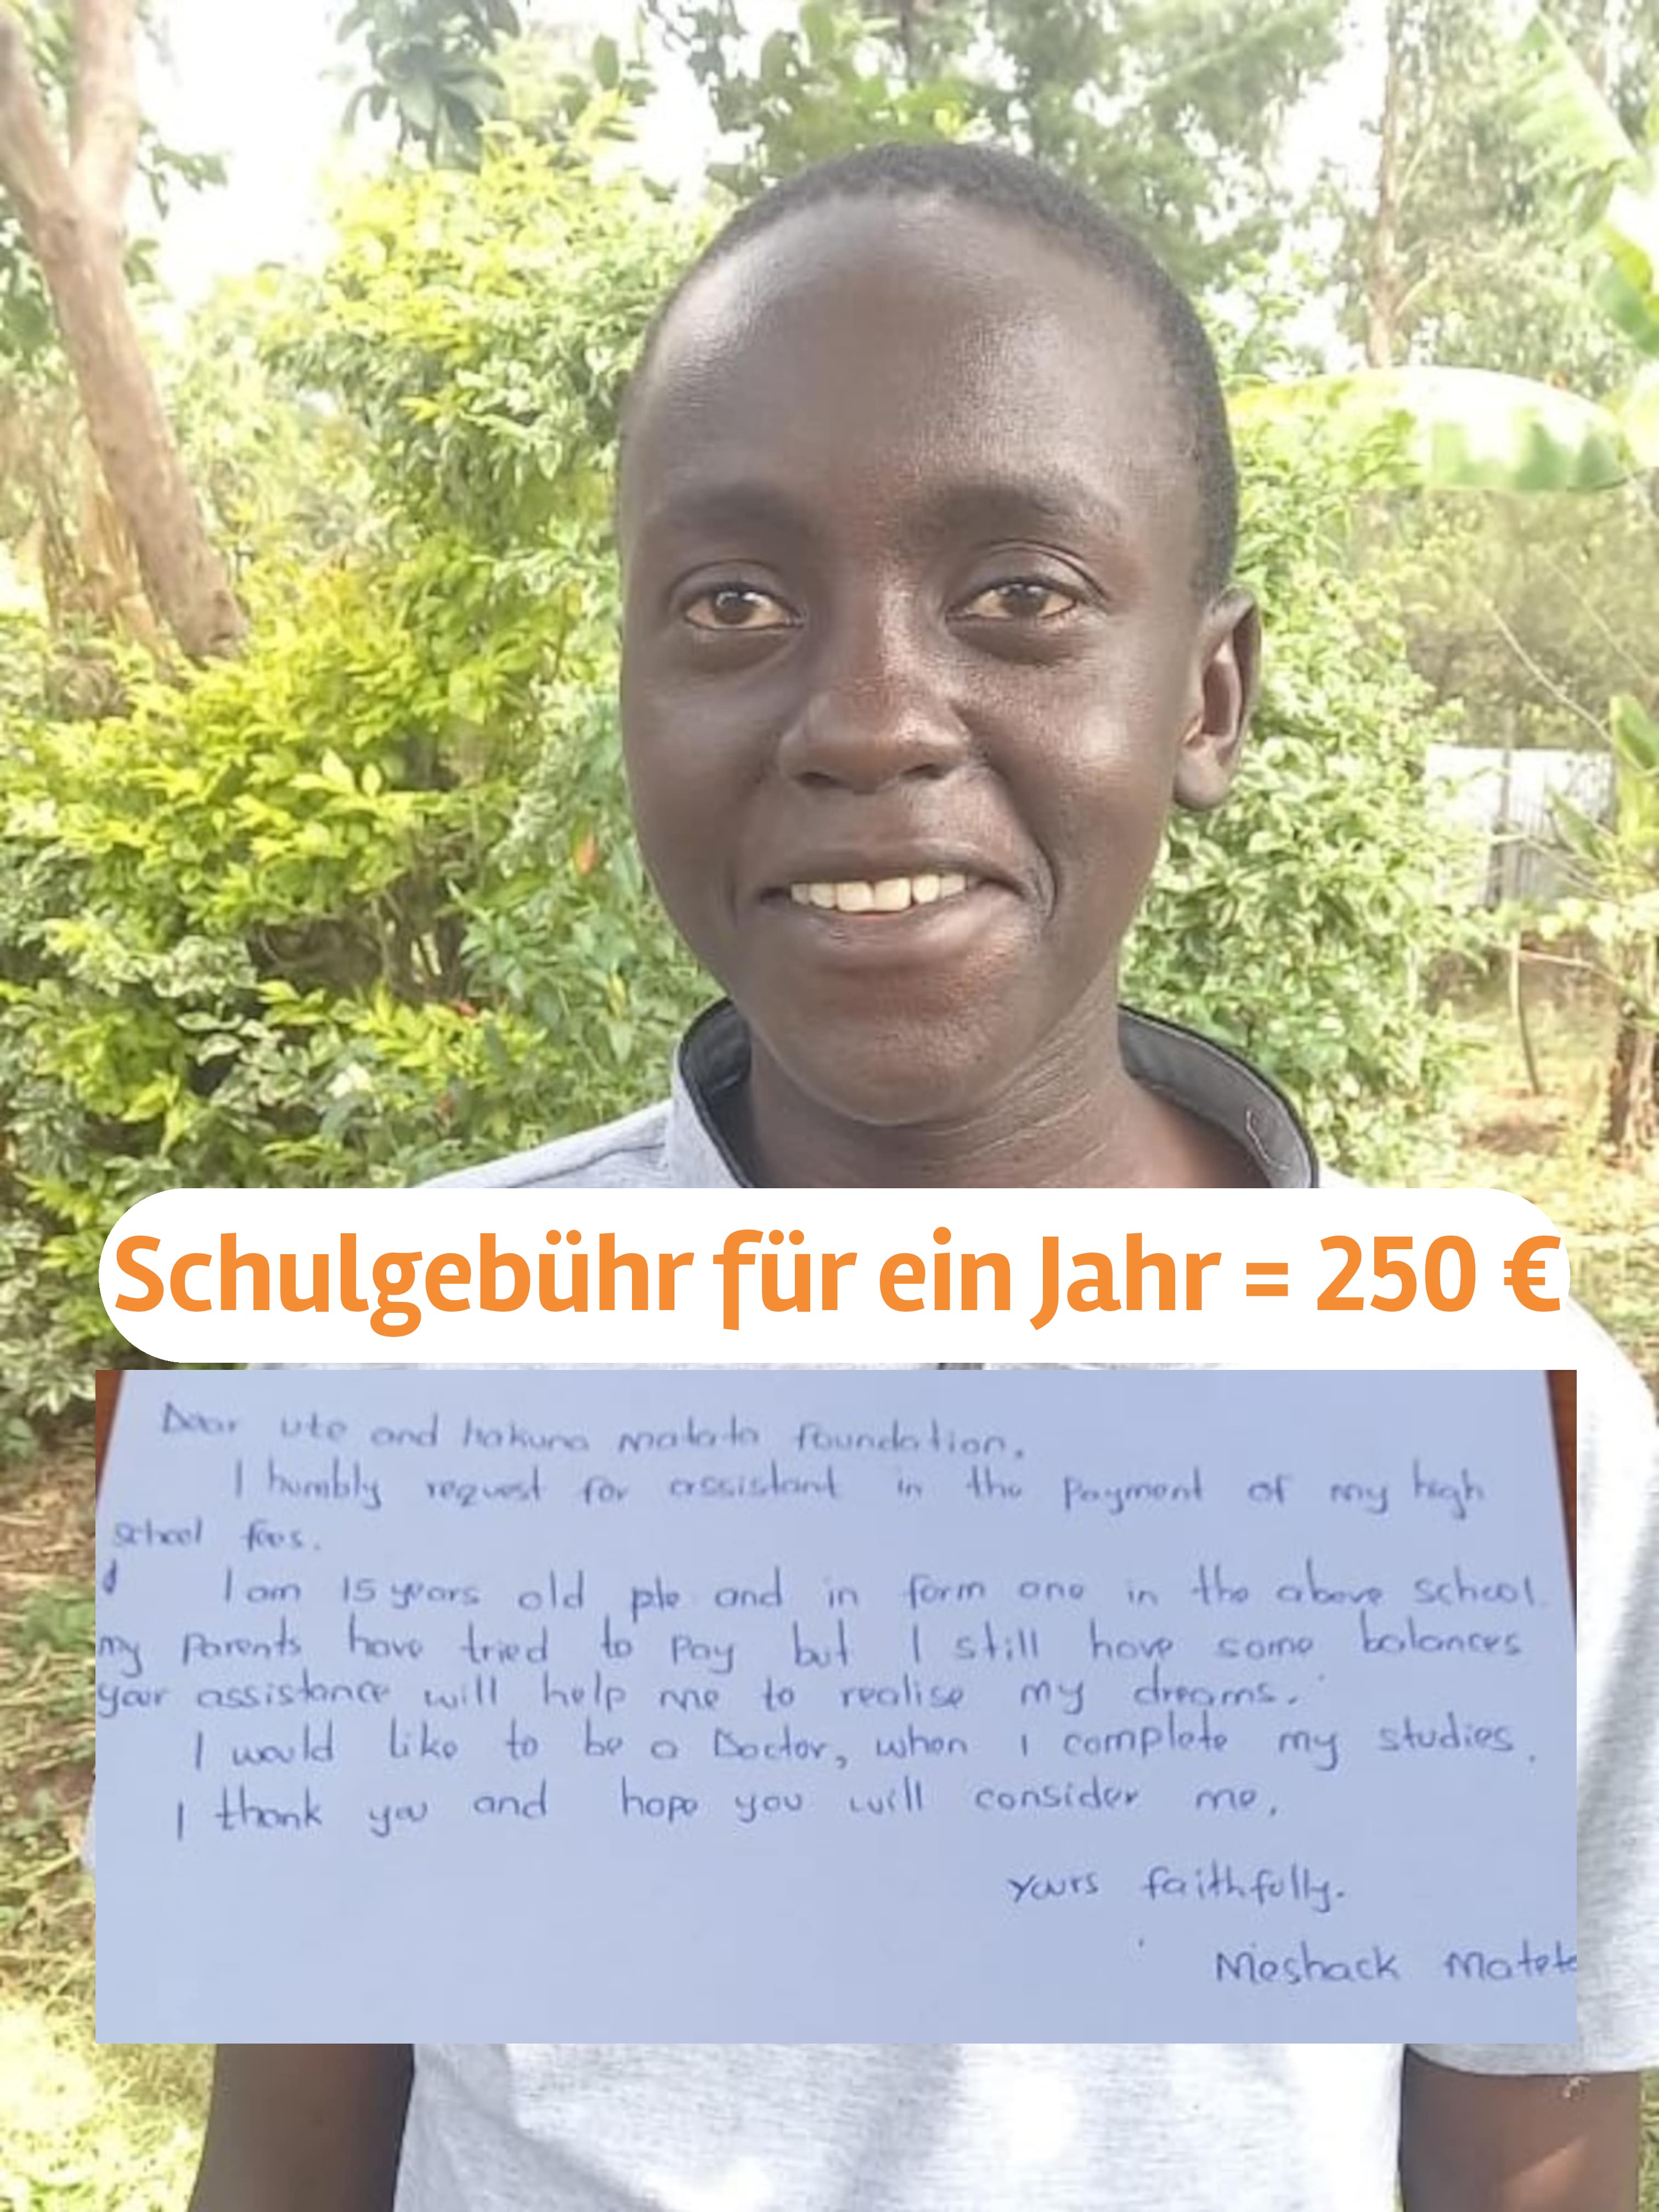 Schulgebühr für ein Jahr = 250 €
Dear Ute and hakuna matata foundation.
I humbly request for assistant in the payment of my high
school fees.
I am 15 years old and in form one in the above school.
my parents have tried to pay but I still have some balances
your assistance will help me to realise my dreams.
I would like to be a Doctor, when I complete my studies.
I thank you and hope you will consider me.
Yours faithfully.
Meshack